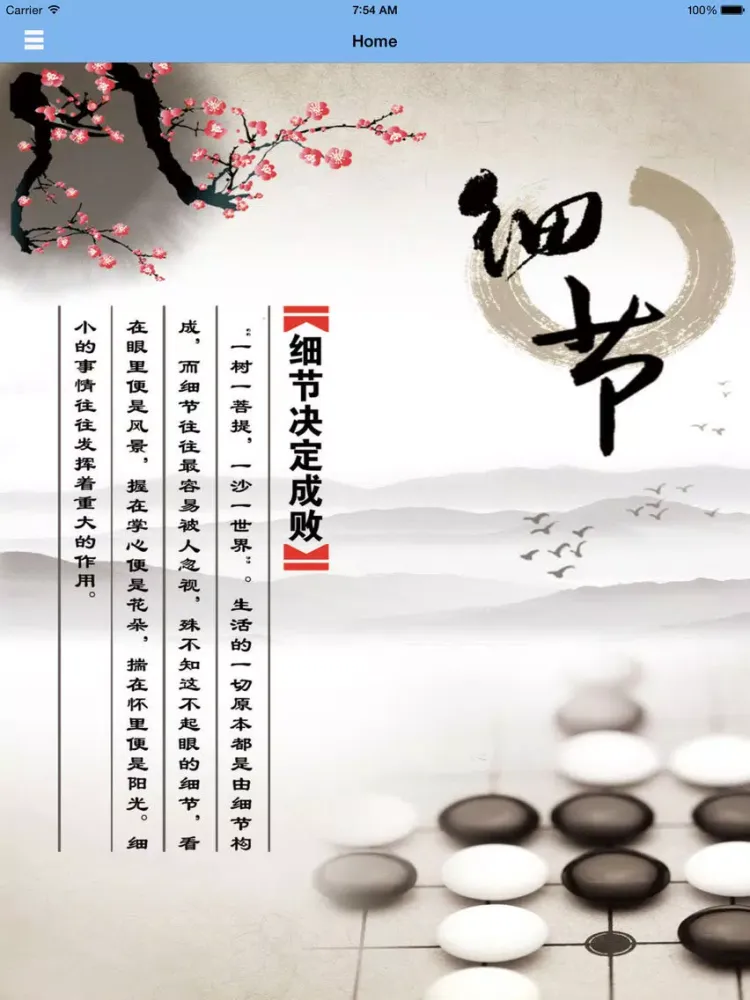 Carrier
7:54 AM
100%
Home
细节
细节决定成败
“一树一菩提，一沙一世界”。生活的一切原本都是由细节构
成，而细节往往最容易被人忽视，殊不知这不起眼的细节，看
在眼里便是风景，握在掌心便是花朵，揣在怀里便是阳光。细
小的事情往往发挥着重大的作用。